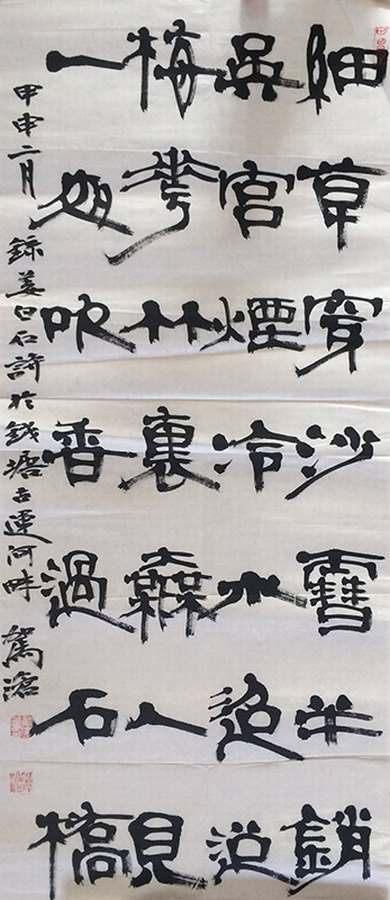 細草穿沙雪半銷
吳宮煙冷水迢迢
梅華竹裏無人見
一夜吹香過石橋
甲申二月 錄姜白石詩於錢塘古運河畔 駕滄